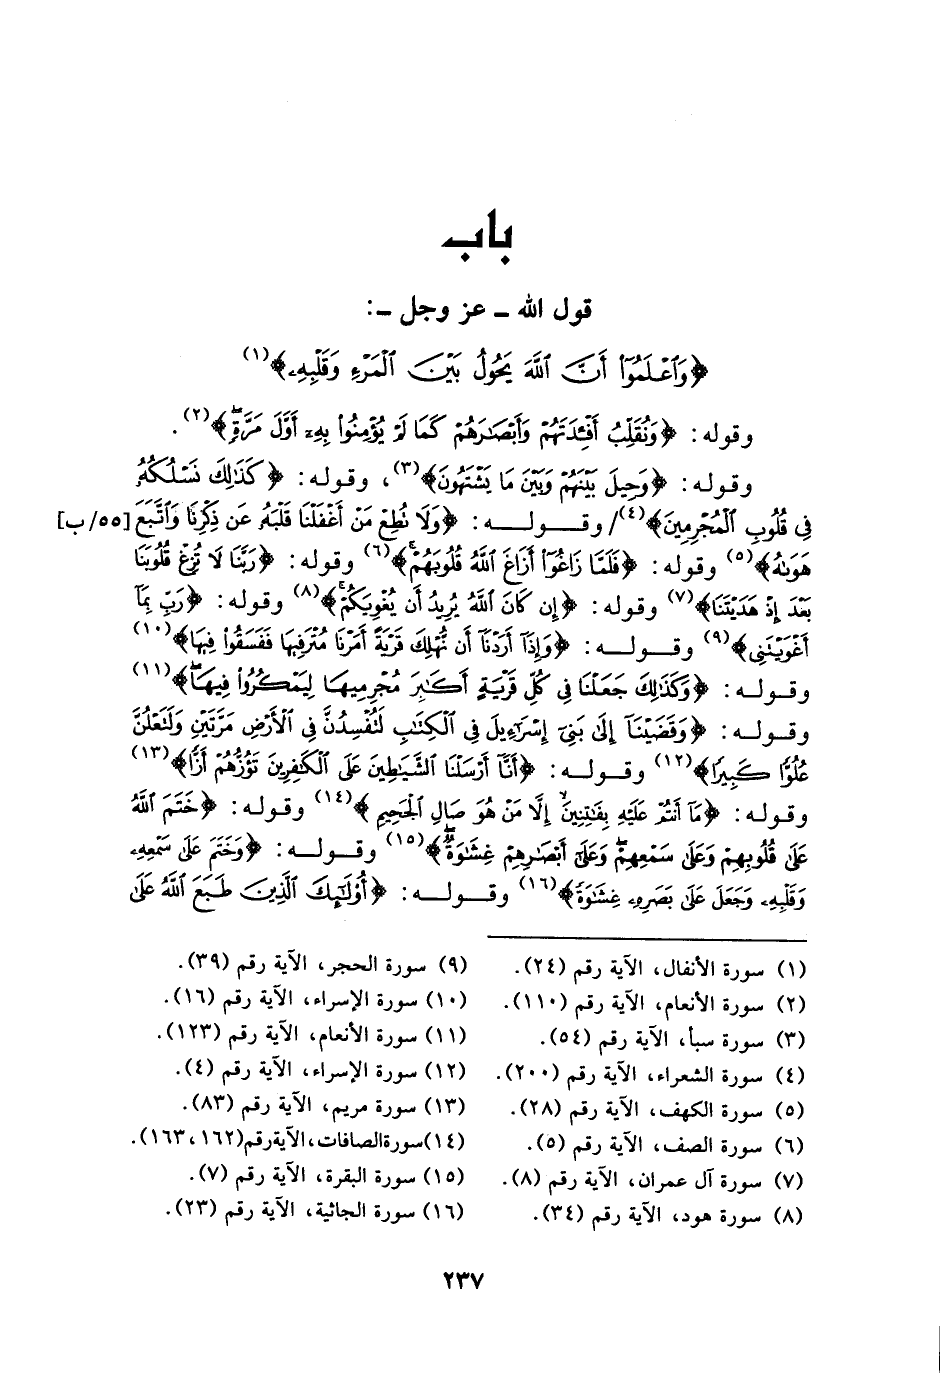 باب
قول الله - عز وجل -:
﴿وَاعْلَمُوا أَنَّ اللَّهَ يَحُولُ بَيْنَ الْمَرْءِ وَقَلْبِهِ﴾(١)
وقوله: ﴿وَنُقَلِّبُ أَفْئِدَتَهُمْ وَأَبْصَارَهُمْ كَمَا لَمْ يُؤْمِنُوا بِهِ أَوَّلَ مَرَّةٍ﴾(٢).
وقوله: ﴿وَحِيلَ بَيْنَهُمْ وَبَيْنَ مَا يَشْتَهُونَ﴾(٣)، وقوله: ﴿كَذَلِكَ نَسْلُكُهُ
فِي قُلُوبِ الْمُجْرِمِينَ﴾(٤)/ وقوله: ﴿وَلَا تُطِعْ مَنْ أَغْفَلْنَا قَلْبَهُ عَن ذِكْرِنَا وَاتَّبَعَ [٥٥/ب]
هَوَاهُ﴾(٥) وقوله: ﴿فَلَمَّا زَاغُوا أَزَاغَ اللَّهُ قُلُوبَهُمْ﴾(٦) وقوله: ﴿رَبَّنَا لَا تُزِغْ قُلُوبَنَا
بَعْدَ إِذْ هَدَيْتَنَا﴾(٧) وقوله: ﴿إِن كَانَ اللَّهُ يُرِيدُ أَن يُغْوِيَكُمْ﴾(٨) وقوله: ﴿رَبِّ بِمَا
أَغْوَيْتَنِي﴾(٩) وقوله: ﴿وَإِذَا أَرَدْنَا أَن نُّهْلِكَ قَرْيَةً أَمَرْنَا مُتْرَفِيهَا فَفَسَقُوا فِيهَا﴾(١٠)
وقوله: ﴿وَكَذَلِكَ جَعَلْنَا فِي كُلِّ قَرْيَةٍ أَكَابِرَ مُجْرِمِيهَا لِيَمْكُرُوا فِيهَا﴾(١١)
وقوله: ﴿وَقَضَيْنَا إِلَى بَنِي إِسْرَائِيلَ فِي الْكِتَابِ لَتُفْسِدُنَّ فِي الْأَرْضِ مَرَّتَيْنِ وَلَتَعْلُنَّ
عُلُوًّا كَبِيرًا﴾(١٢) وقوله: ﴿أَنَّا أَرْسَلْنَا الشَّيَاطِينَ عَلَى الْكَافِرِينَ تَؤُزُّهُمْ أَزًّا﴾(١٣)
وقوله: ﴿مَا أَنتُمْ عَلَيْهِ بِفَاتِنِينَ إِلَّا مَنْ هُوَ صَالِ الْجَحِيمِ﴾(١٤) وقوله: ﴿خَتَمَ اللَّهُ
عَلَى قُلُوبِهِمْ وَعَلَى سَمْعِهِمْ وَعَلَى أَبْصَارِهِمْ غِشَاوَةٌ﴾(١٥) وقوله: ﴿وَخَتَمَ عَلَى سَمْعِهِ
وَقَلْبِهِ وَجَعَلَ عَلَى بَصَرِهِ غِشَاوَةً﴾(١٦) وقوله: ﴿أُولَئِكَ الَّذِينَ طَبَعَ اللَّهُ عَلَى
(١) سورة الأنفال، الآية رقم (٢٤).
(٢) سورة الأنعام، الآية رقم (١١٠).
(٣) سورة سبأ، الآية رقم (٥٤).
(٤) سورة الشعراء، الآية رقم (٢٠٠).
(٥) سورة الكهف، الآية رقم (٢٨).
(٦) سورة الصف، الآية رقم (٥).
(٧) سورة آل عمران، الآية رقم (٨).
(٨) سورة هود، الآية رقم (٣٤).
(٩) سورة الحجر، الآية رقم (٣٩).
(١٠) سورة الإسراء، الآية رقم (١٦).
(١١) سورة الأنعام، الآية رقم (١٢٣).
(١٢) سورة الإسراء، الآية رقم (٤).
(١٣) سورة مريم، الآية رقم (٨٣).
(١٤) سورة الصافات، الآية رقم (١٦٢، ١٦٣).
(١٥) سورة البقرة، الآية رقم (٧).
(١٦) سورة الجاثية، الآية رقم (٢٣).
٢٣٧